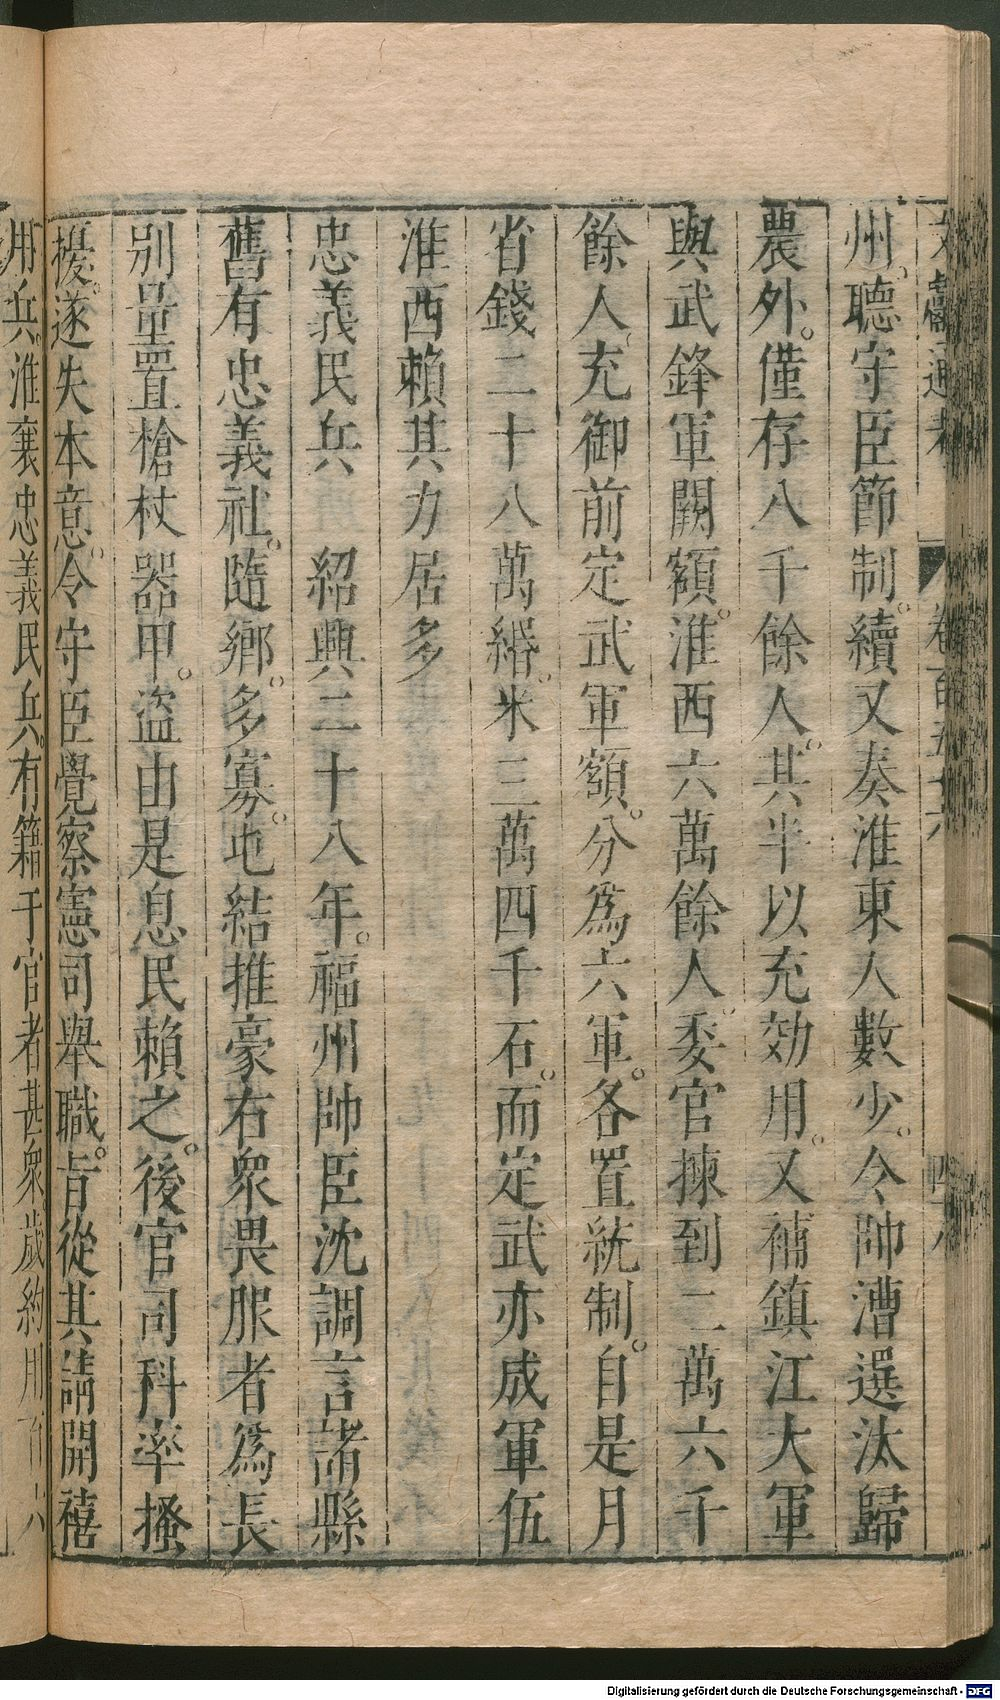 文獻通考 卷一百五十六 四十八
州。聽守臣節制。續又奏淮東人數少。令帥漕選汰歸
農外。僅存八千餘人。其半以充効用。又補鎮江大軍
與武鋒軍闕額。淮西六萬餘人。委官揀到二萬六千
餘人。充御前定武軍額。分爲六軍。各置統制。自是月
省錢二十八萬緡。米三萬四千石。而定武亦成軍伍
淮西賴其力居多
忠義民兵 紹興二十八年。福州帥臣沈調言諸縣
舊有忠義社。隨鄉。多寡。地結推豪右衆畏服者爲長
別量置槍杖器甲。盜由是息民賴之。後官司科率搔
擾。遂失本意。令守臣覺察憲司舉職。旨從其請開禧
用兵。淮襄忠義民兵。有籍于官者甚衆歲約用
Digitalisierung gefördert durch die Deutsche Forschungsgemeinschaft - DFG